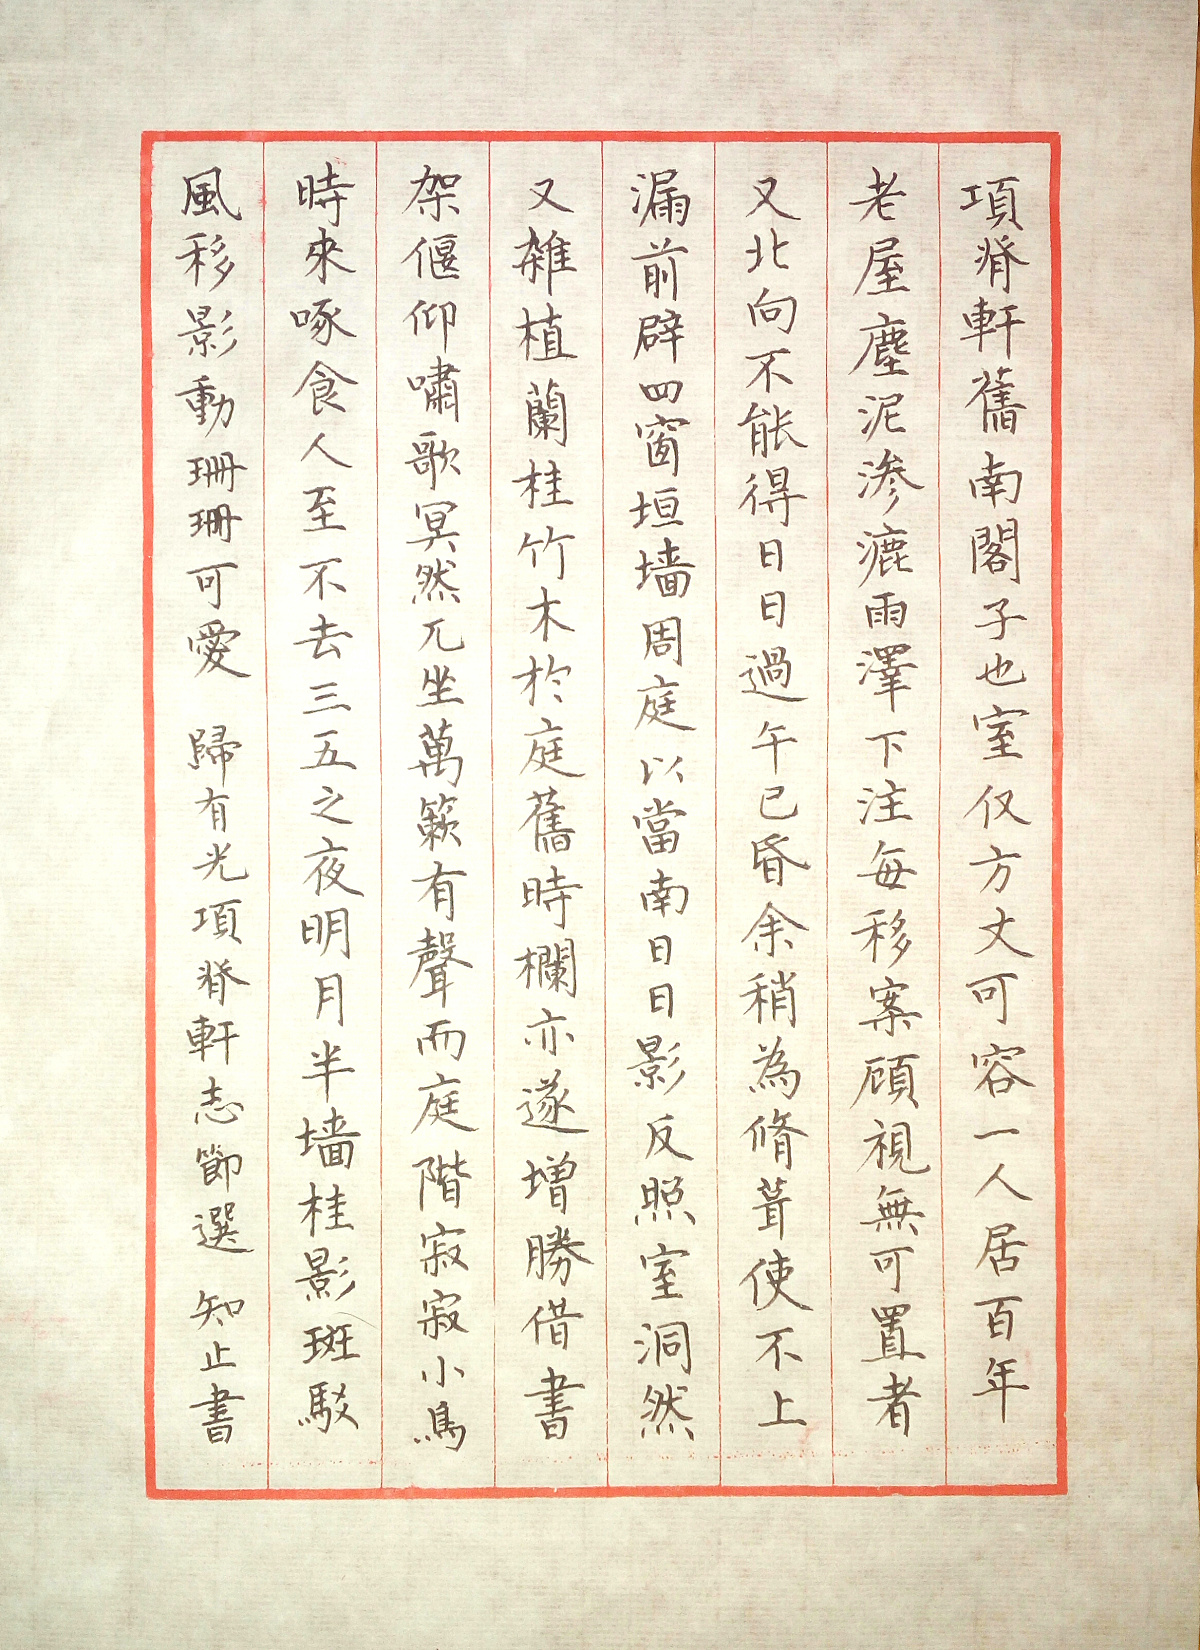 項脊軒舊南閣子也室仅方丈可容一人居百年
老屋塵泥渗漉雨澤下注每移案顧視無可置者
又北向不能得日日過午已昏余稍為脩葺使不上
漏前辟四窗垣墙周庭以當南日日影反照室洞然
又雑植蘭桂竹木於庭舊時欄亦遂增勝借書
架偃仰嘯歌冥然兀坐萬籁有聲而庭階寂寂小鳥
時來啄食人至不去三五之夜明月半墙桂影斑駁
風移影動珊珊可愛 歸有光項脊軒志節選 知止書